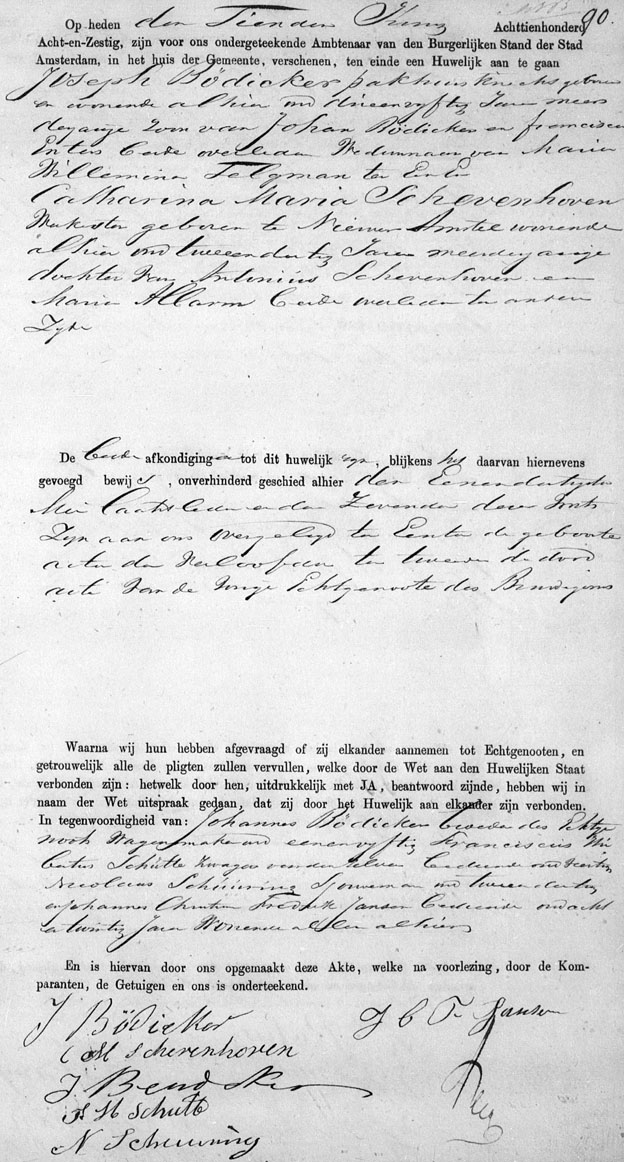 90.
Op heden den Tienden Juny Achttienhonderd
Acht-en-Zestig, zijn voor ons ondergeteekende Ambtenaar van den Burgerlijken Stand der Stad
Amsterdam, in het huis der Gemeente, verschenen, ten einde een Huwelijk aan te gaan
Joseph Bödicker pakhuisknecht geboren
en wonende alhier oud drieenvyftig Jaren meer
derjarige Zoon van Johan Bödicker en Francisca
Enters beide overleden Weduwnaar van Maria
Willemina Telgman ter Eenre
Catharina Maria Schevenhoven
Werkster geboren te Nieuwer Amstel wonende
alhier oud tweeendertig Jaren meerderjarige
dochter van Antonius Schevenhoven en
Maria Allarm beide overleden ter andere
Zyde
De beide afkondigingen tot dit huwelijk zyn, blijkens het daarvan hiernevens
gevoegd bewijs, onverhinderd geschied alhier den Eenendertigsten
Mei laatstleden en den Zevenden dezer
Zyn aan ons overgelegd ten Eerste de geboorte
acten der Verloofden ten tweede de dood
acte van de vorige Echtgenoote des Bruidegoms
Waarna wij hun hebben afgevraagd of zij elkander aannemen tot Echtgenooten, en
getrouwelijk alle de pligten zullen vervullen, welke door de Wet aan den Huwelijken Staat
verbonden zijn: hetwelk door hen, uitdrukkelijk met JA, beantwoord zijnde, hebben wij in
naam der Wet uitspraak gedaan, dat zij door het Huwelijk aan elkander zijn verbonden.
In tegenwoordigheid van: Johannes Bödicker broeder des Echtge
noot Wagenmaker oud eenenvyftig Franciscus
Schutte Zwager van denzelven bediende oud
Nicolaas Scheuning Sjouwerman oud tweeendertig
en Johannes Christiaan Fredrik Janson bediende oud acht
en twintig Jaren Wonende allen alhier
En is hiervan door ons opgemaakt deze Akte, welke na voorlezing, door de Kom-
paranten, de Getuigen en ons is onderteekend.
J Bödicker
J C F Janson
C M Schevenhoven
J. Bendcker
F H Schutte
N Scheuning